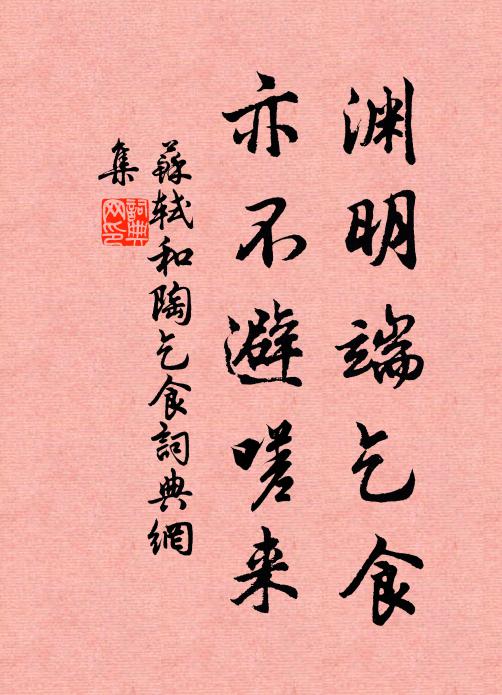 渊明端乞食
亦不避嗟来
蘇轼和陶乞食詞典網
集
詞典网印